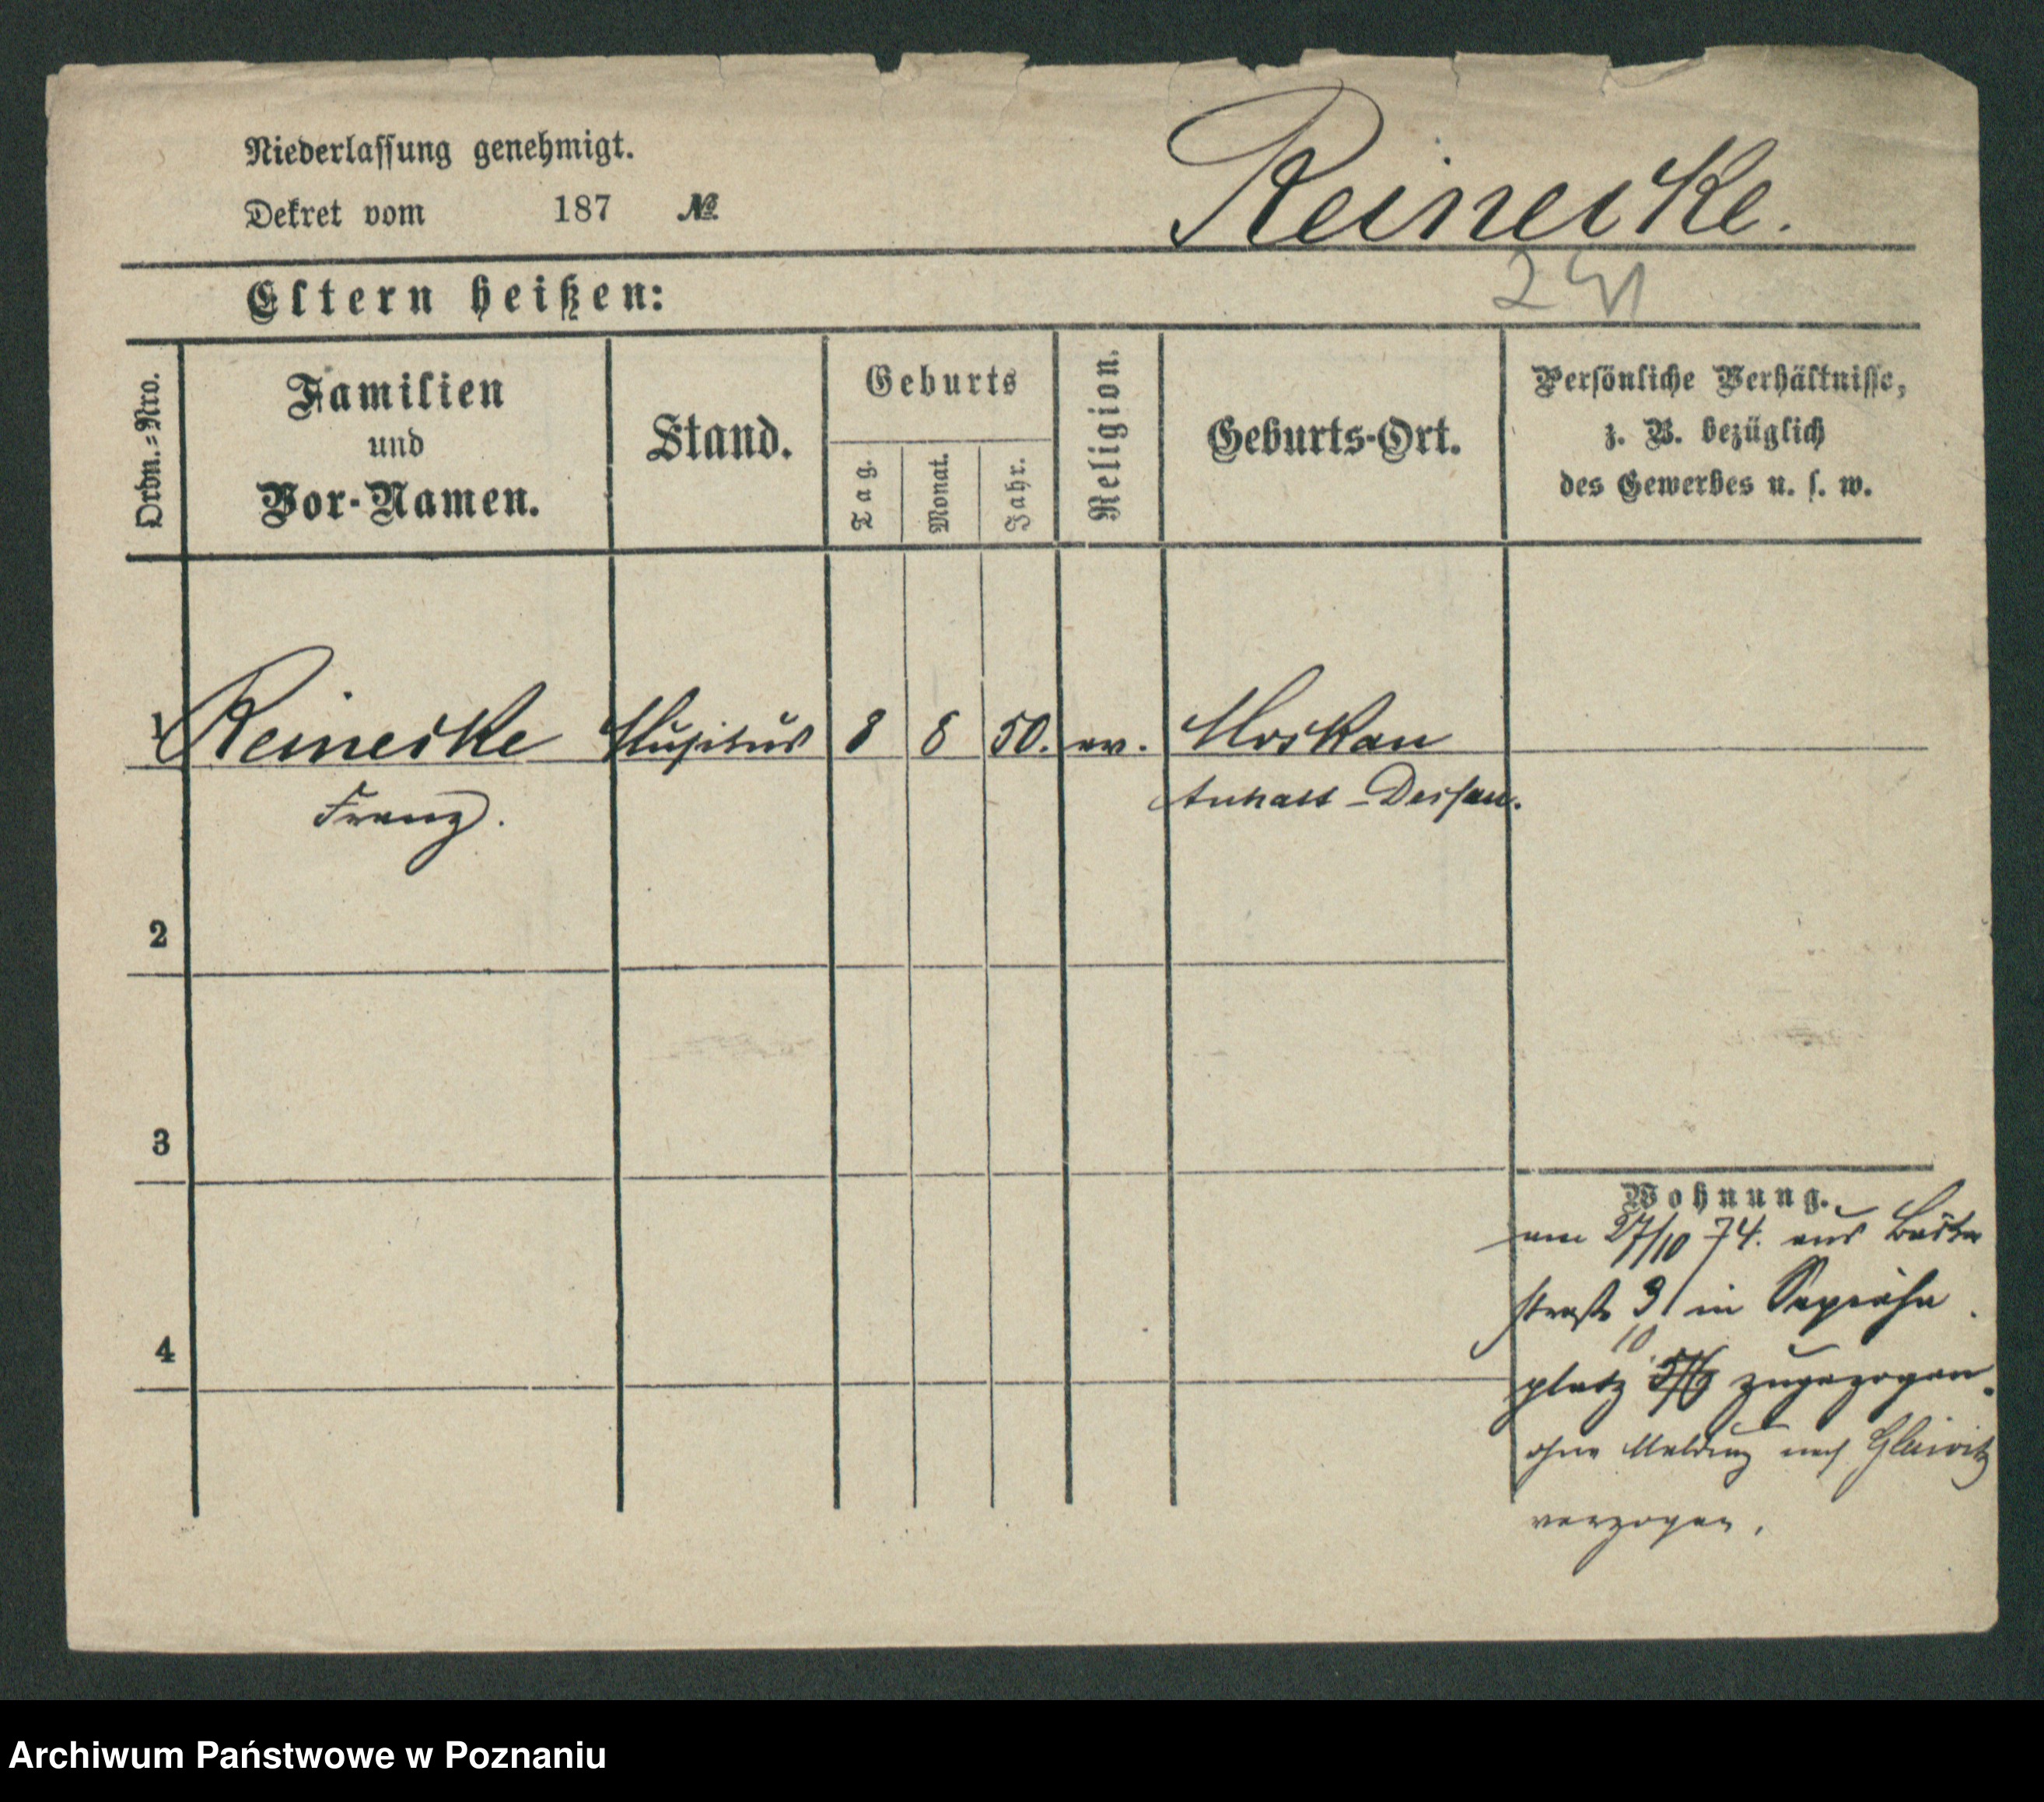 Niederlassung genehmigt.
Dekret vom 187 №
Reinecke.
Eltern heißen:
Ordn.-Nro.
Familien
und
Vor-Namen.
Stand.
Geburts
Tag.
Monat.
Jahr.
Religion.
Geburts-Ort.
Persönliche Verhältnisse,
z. B. bezüglich
des Gewerbes u. s. w.
1 Reinecke Musikus 8 8 50. ev.
Franz.
Anhalt-Dessau.
2
3
4
Wohnung.
am 27/10 74. aus
straße 31 in Sapieha
10
platz zugezogen.
ohne Meldung nach Gleiwitz
verzogen.
Archiwum Państwowe w Poznaniu